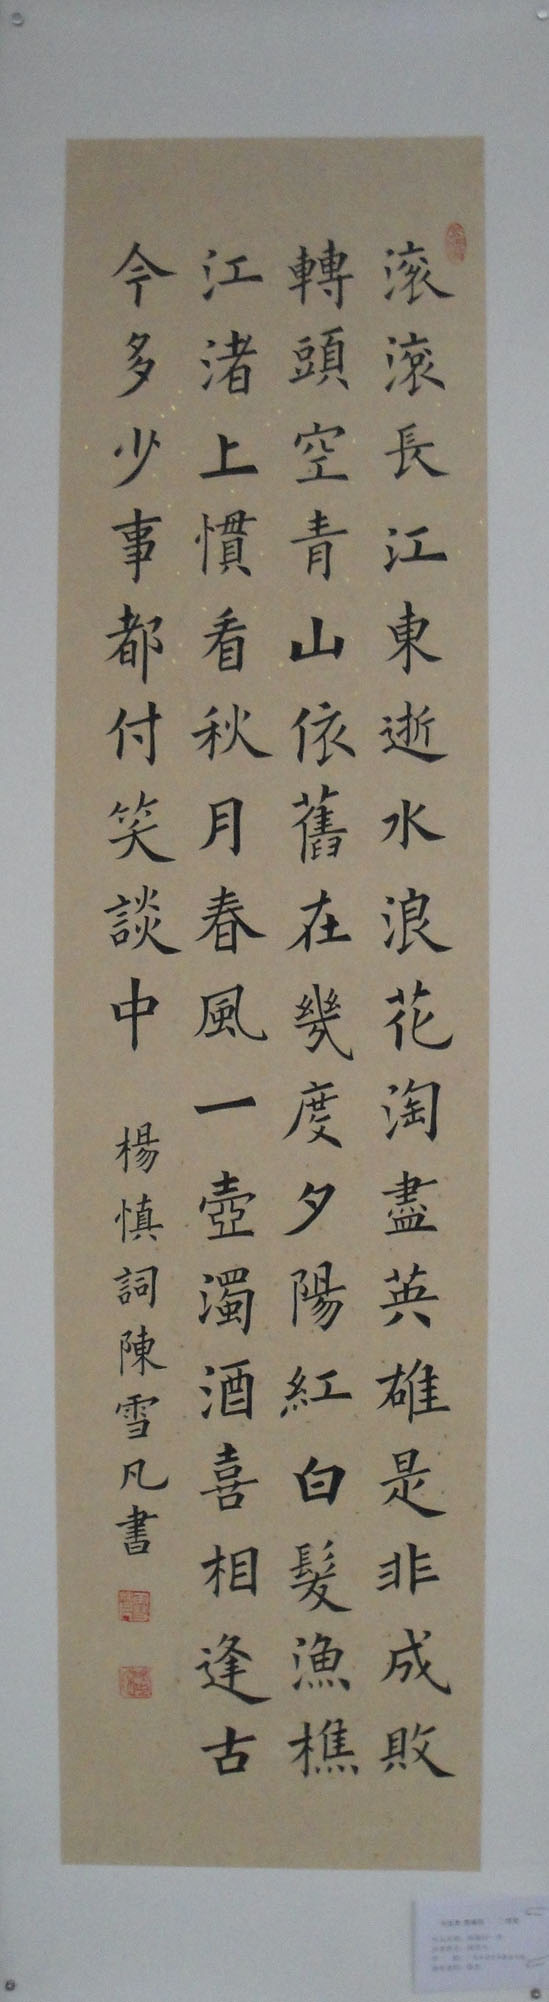 滚滚長江東逝水浪花淘盡英雄是非成敗
轉頭空青山依舊在幾度夕陽紅白髮漁樵
江渚上慣看秋月春風一壺濁酒喜相逢古
今多少事都付笑談中
楊慎詞陳雪凡書